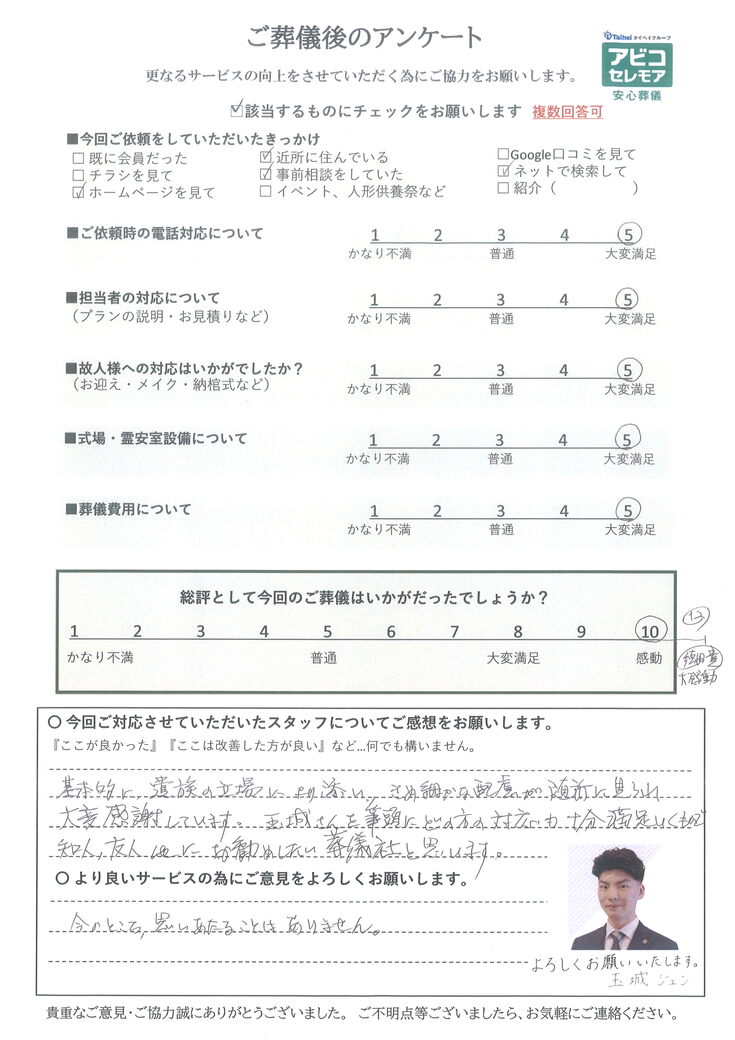 ご葬儀後のアンケート
Taihei タイヘイグループ
アビコ
セレモア
安心葬儀
更なるサービスの向上をさせていただく為にご協力をお願いします。
☑該当するものにチェックをお願いします 複数回答可
■今回ご依頼をしていただいたきっかけ
☐ 既に会員だった ☑ 近所に住んでいる ☐Google口コミを見て
☐ チラシを見て ☑ 事前相談をしていた ☑ ネットで検索して
☑ ホームページを見て ☐ イベント、人形供養祭など ☐ 紹介（ ）
■ご依頼時の電話対応について 1 2 3 4 5
かなり不満 普通 大変満足
■担当者の対応について 1 2 3 4 5
（プランの説明・お見積りなど） かなり不満 普通 大変満足
■故人様への対応はいかがでしたか？ 1 2 3 4 5
（お迎え・メイク・納棺式など） かなり不満 普通 大変満足
■式場・霊安室設備について 1 2 3 4 5
かなり不満 普通 大変満足
■葬儀費用について 1 2 3 4 5
かなり不満 普通 大変満足
総評として今回のご葬儀はいかがだったでしょうか？
1 2 3 4 5 6 7 8 9 10
かなり不満 普通 大変満足 感動
大感動
〇 今回ご対応させていただいたスタッフについてご感想をお願いします。
『ここが良かった』『ここは改善した方が良い』など…何でも構いません。
基本的に、遺族の立場により添い、きめ細かな配慮が随所に見られ
大変感謝しています。玉城さんを筆頭にどの方の対応も十分満足いくもので
知人,友人他にお勧めしたい葬儀社と思います。
〇 より良いサービスの為にご意見をよろしくお願いします。
今のところ,思いあたることはありません。
よろしくお願いいたします。
玉城 ジュン
貴重なご意見・ご協力誠にありがとうございました。 ご不明点等ございましたら、お気軽にご連絡ください。